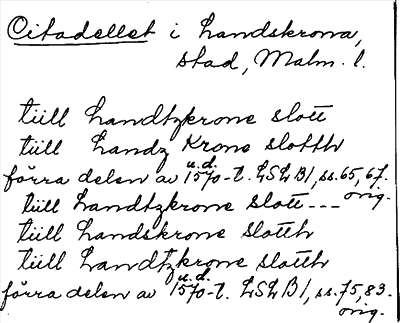 Citadellet i Landskrona,
stad, Malm. l.
tüll Landtzkrone slott
tüll Landz Krone slotth
förra delen av u.d. 1570-t. LSLB1, ss. 65, 67. orig.
tüll Landtzkrone slott---
tüll Landskrone slotth
tüll Landtzkrone slotth
förra delen av u.d. 1570-t. LSLB1, ss. 75, 83. orig.